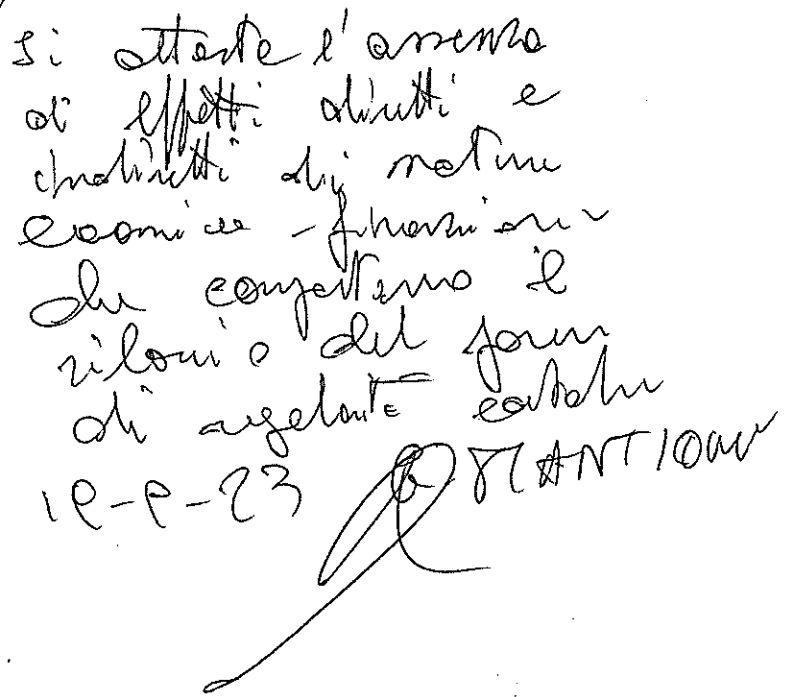 Si attesta l'assenza
di effetti diretti e
indiretti di natura
economica - finanziari
che comportano il
rilascio del parere
di regolarità contabile